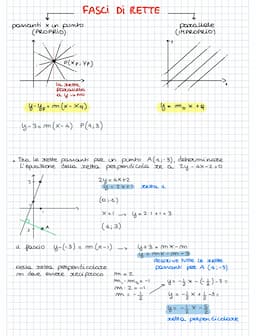 FASCI DI RETTE
passanti x un punto
(PROPRIO)
parallele
(IMPROPRIO)
P(xₚ, yₚ)
la retta
parallela
a y
y-yₚ = m(x-xₚ)
y = m₀x+q
y-3 = m(x-4) P(4;3)
Tra le rette passanti per un punto A(1;-3), determinare
l'equazione della retta perpendicolare a 2y-4x-2=0
2y = 4x+2
y = 2x+1 retta r
x=1 → y = 2·1+1 = 3
(1;3)
fascio y-(-3) = m(x-1) → y+3 = mx-m
y = mx-m-3
descrive tutte le rette
passanti per A(1;-3)
nella retta perpendicolare
m deve essere reciproco
m = 2
m₁·m₂ = -1
m·2 = -1
m = -1/2
y = -1/2x-(-1/2)-3 =
y = -1/2x+1/2-3 =
y = -1/2x-5/2
retta perpendicolare